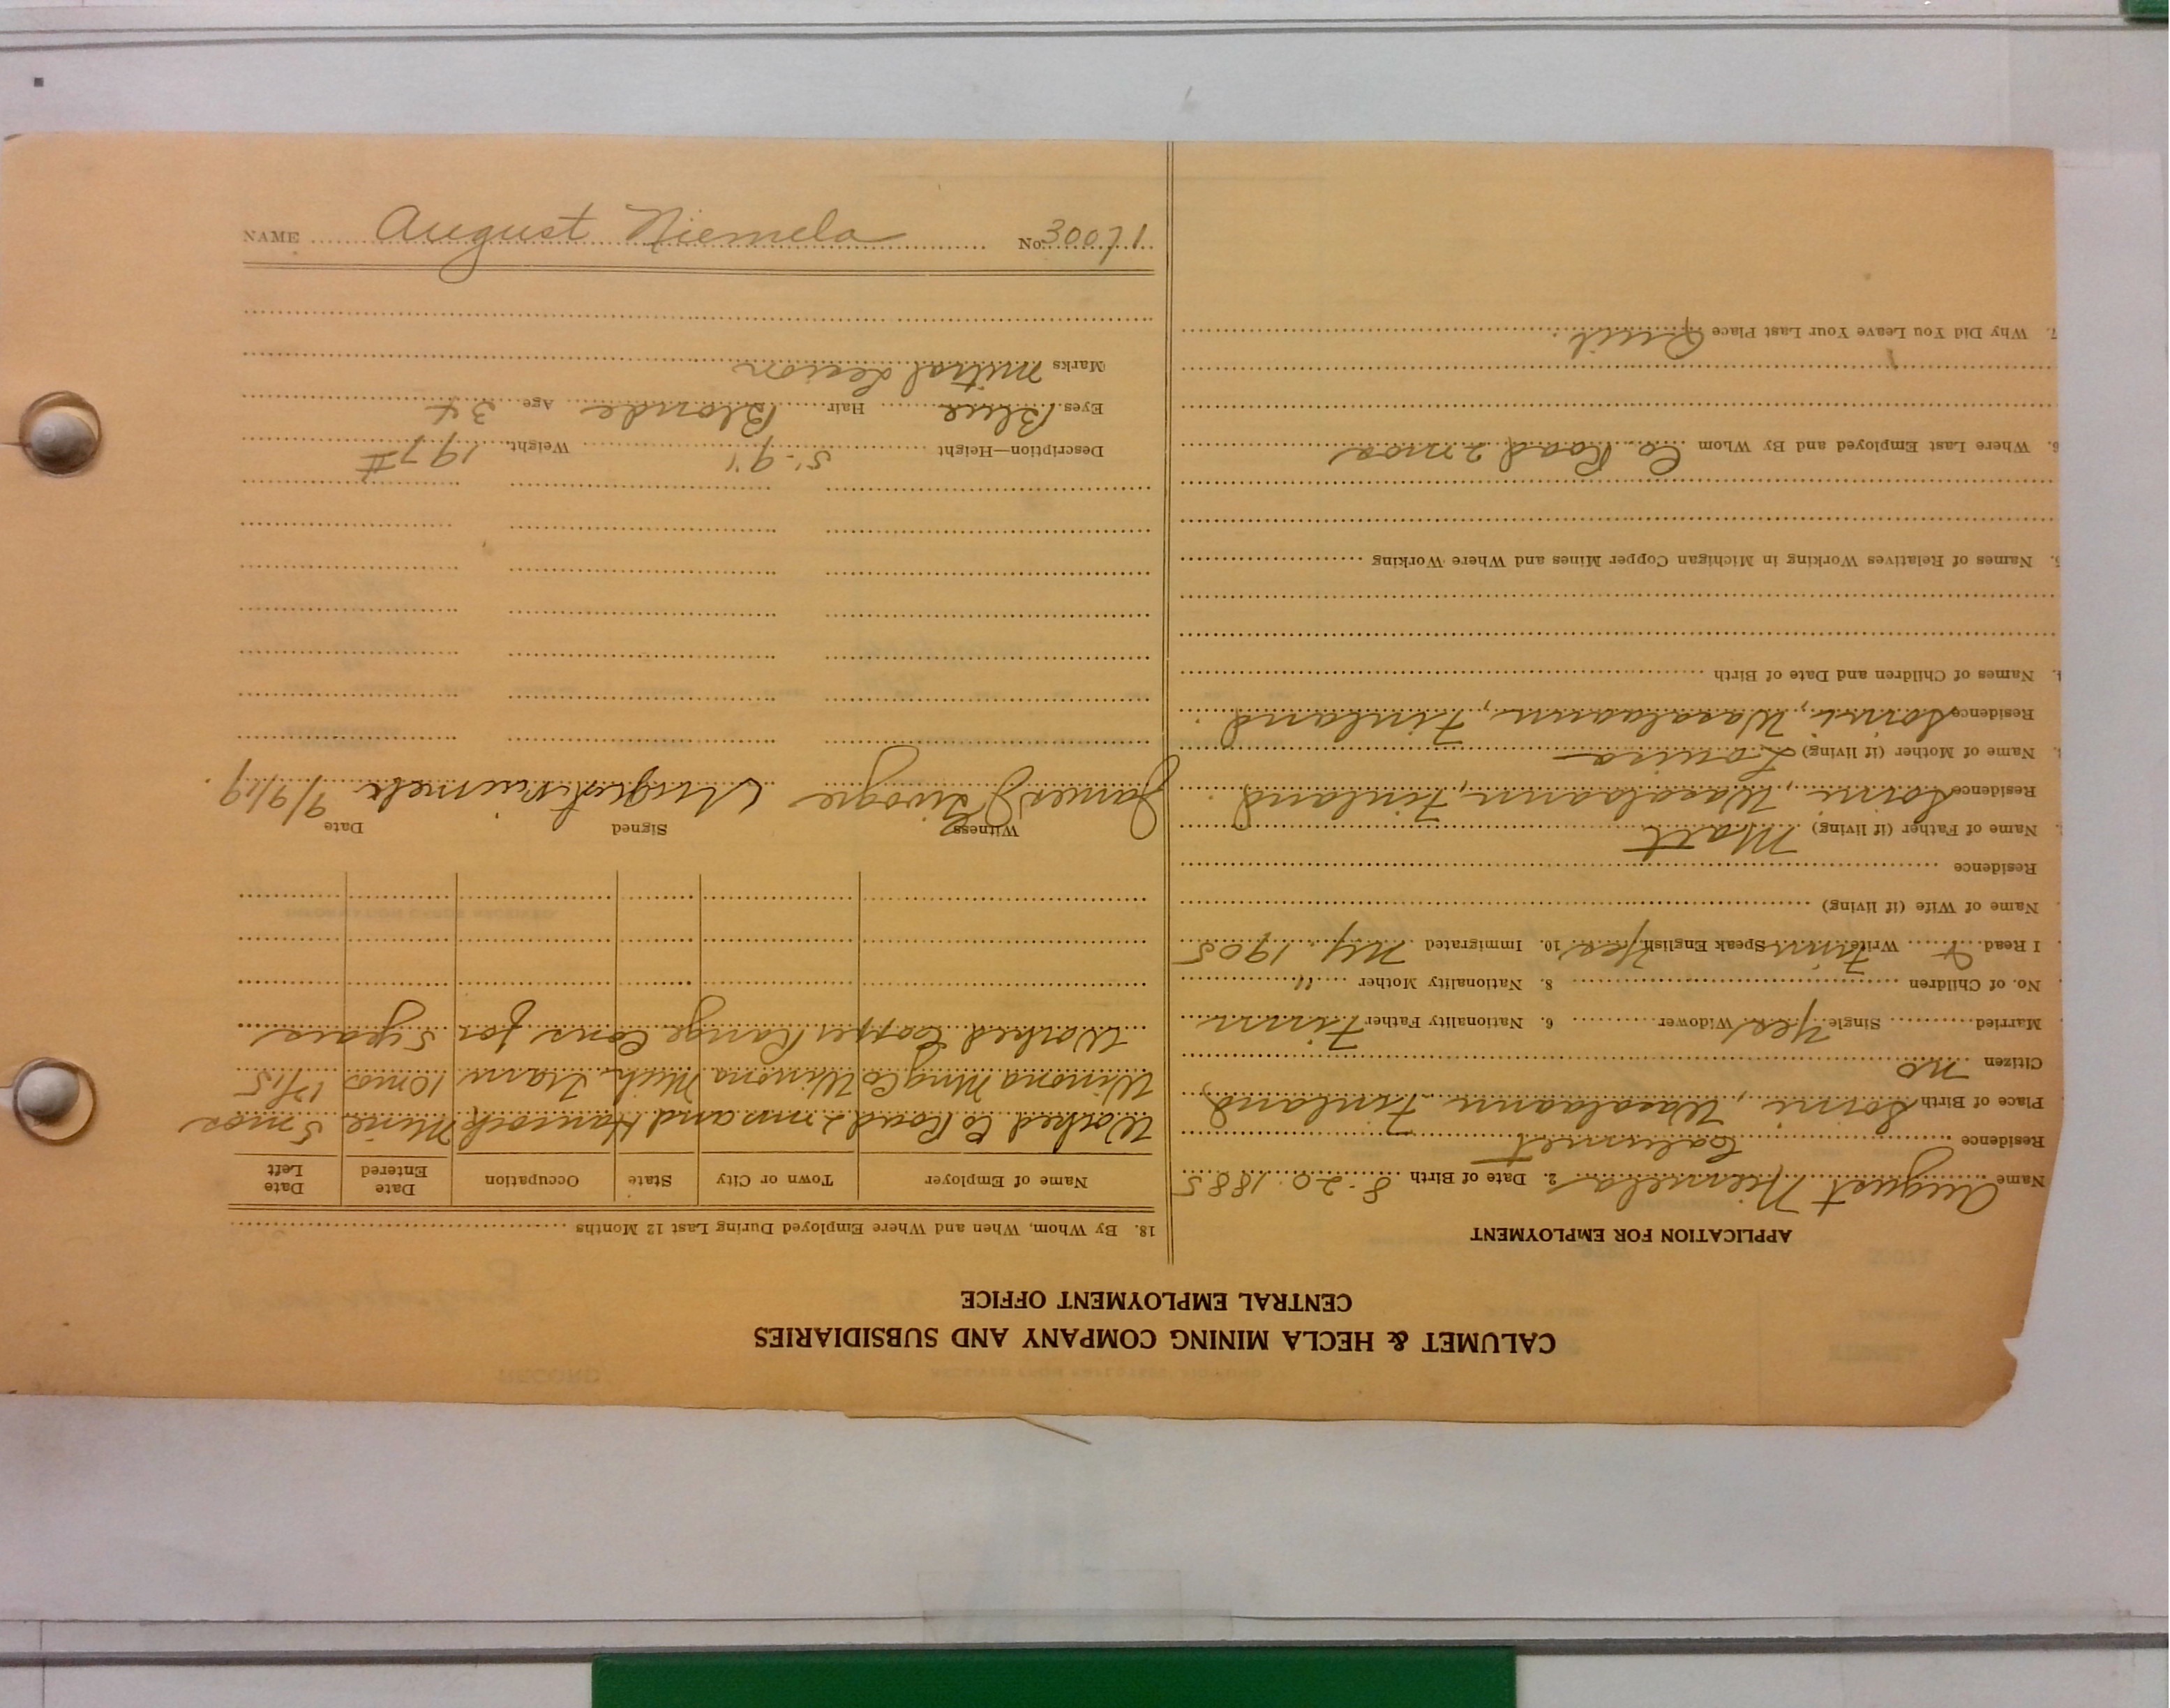 NAME August Niemela No. 30071
CALUMET & HECLA MINING COMPANY AND SUBSIDIARIES
CENTRAL EMPLOYMENT OFFICE
APPLICATION FOR EMPLOYMENT
Name August Niemela 2. Date of Birth 8-20-1885
Residence Calumet
Place of Birth Soini, Wasalaann Finland
Citizen no
Married Single Yes Widower 6. Nationality Father Finn
No. of Children 8. Nationality Mother "
I Read & Write Finn Speak English Yes 10. Immigrated NY. 1905
Name of Wife (if living)
Residence
Name of Father (if living) Matt
Residence Soini, Wasalaann, Finland
Name of Mother (if living) Louisa
Residence Soini, Wasalaann, Finland
Names of Children and Date of Birth
Names of Relatives Working in Michigan Copper Mines and Where Working
6. Where Last Employed and By Whom Co. Road 2 mos
7. Why Did You Leave Your Last Place Quit.
18. By Whom, When and Where Employed During Last 12 Months
Name of Employer Town or City State Occupation Date Entered Date Left
Worked Co Road 2 mos and Hancock Mine 5 mos
Winona Mng Co Winona Mich. Tram 10 mos 12/15
Worked Copper Range Cons for 5 years
Witness Signed Date
James August Niemela 9/9/19
Description—Height 5'-9" Weight 197 #
Eyes Blue Hair Blonde Age 34
Marks mitral Lesion